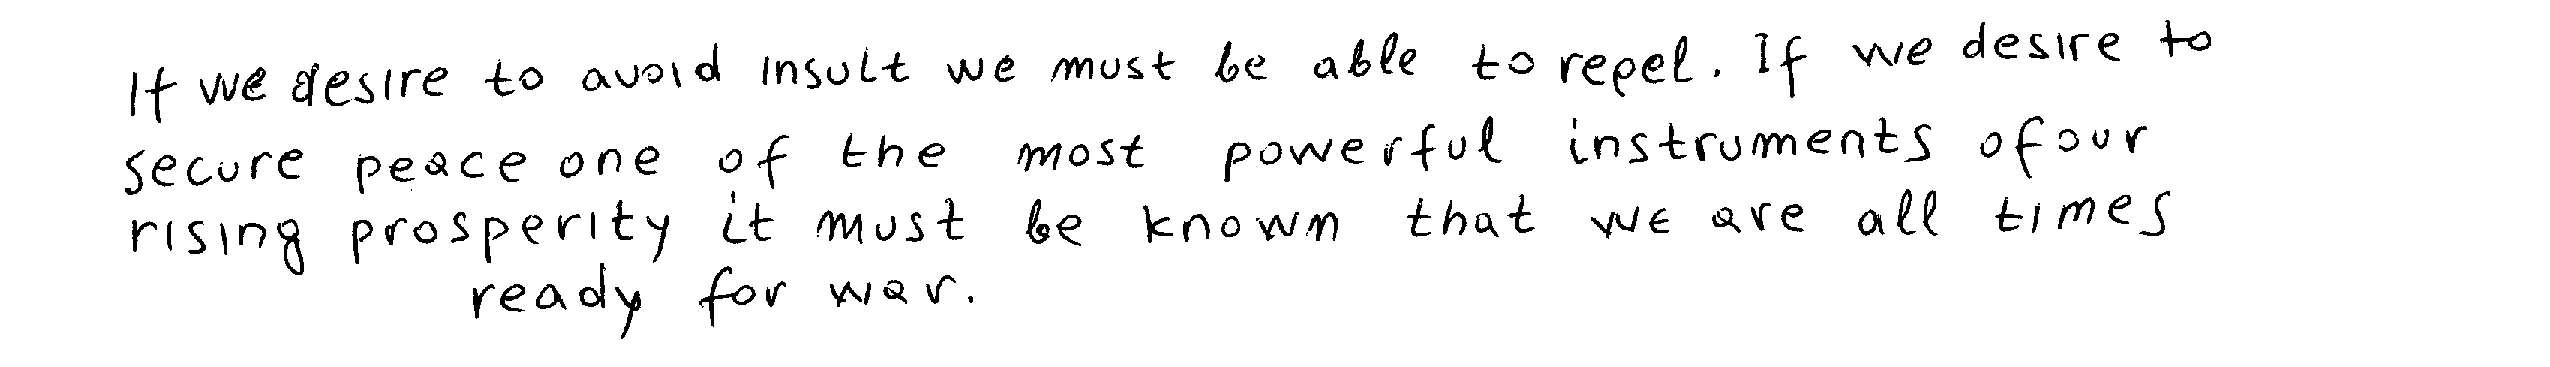 If we desire to avoid insult we must be able to repel. If we desire to
secure peace one of the most powerful instruments of our
rising prosperity it must be known that we are all times
ready for war.